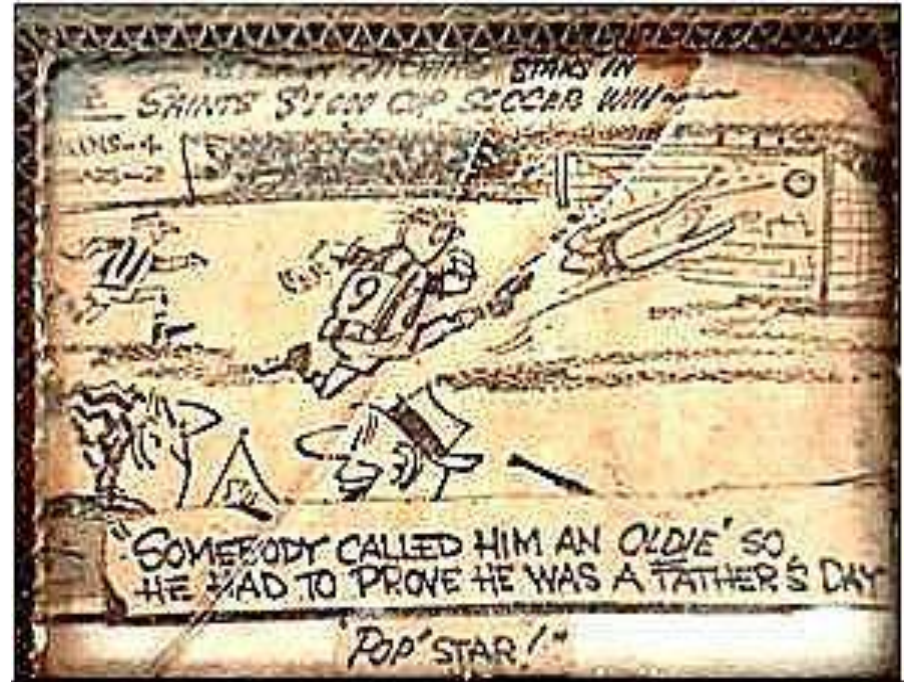 STARS IN
SAINTS $1000 CUP SOCCER WIN
9
"SOMEBODY CALLED HIM AN 'OLDIE' SO
HE HAD TO PROVE HE WAS A FATHER'S DAY
'POP' STAR!"